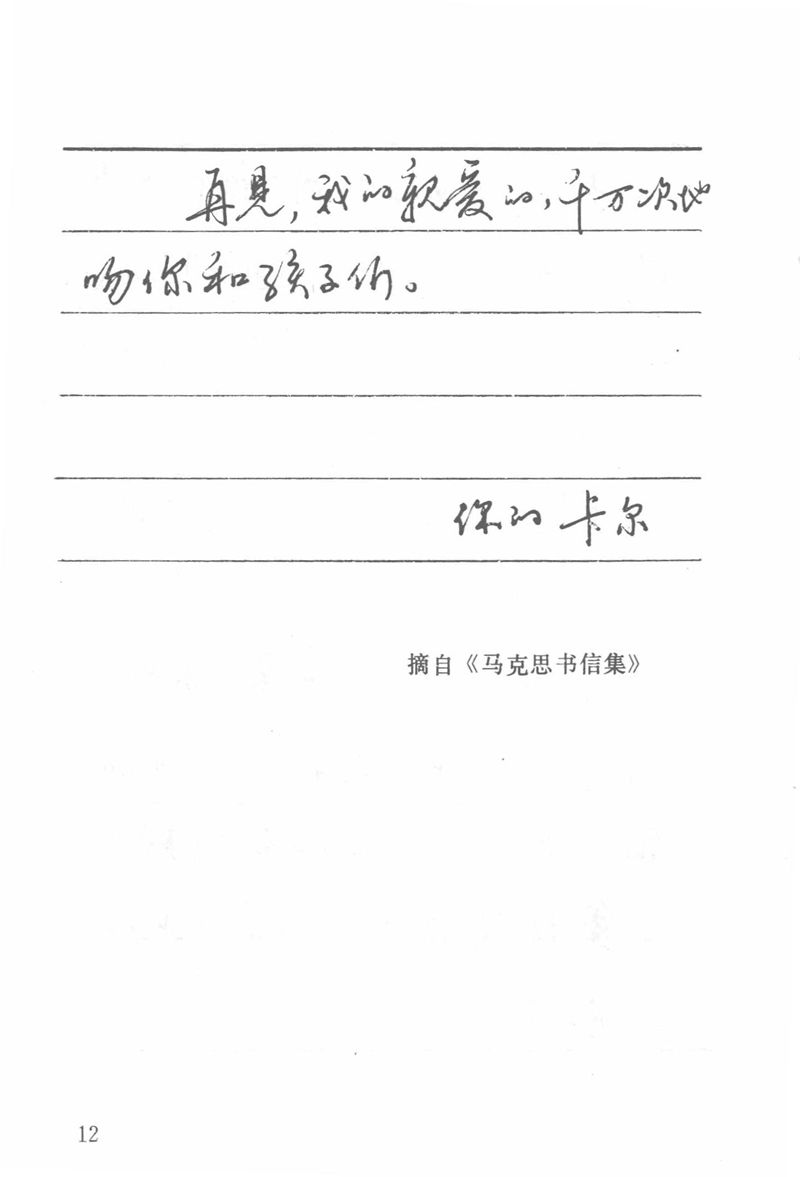 再见，我的亲爱的，千万次地
吻你和孩子们。
你的 卡尔
摘自《马克思书信集》
12